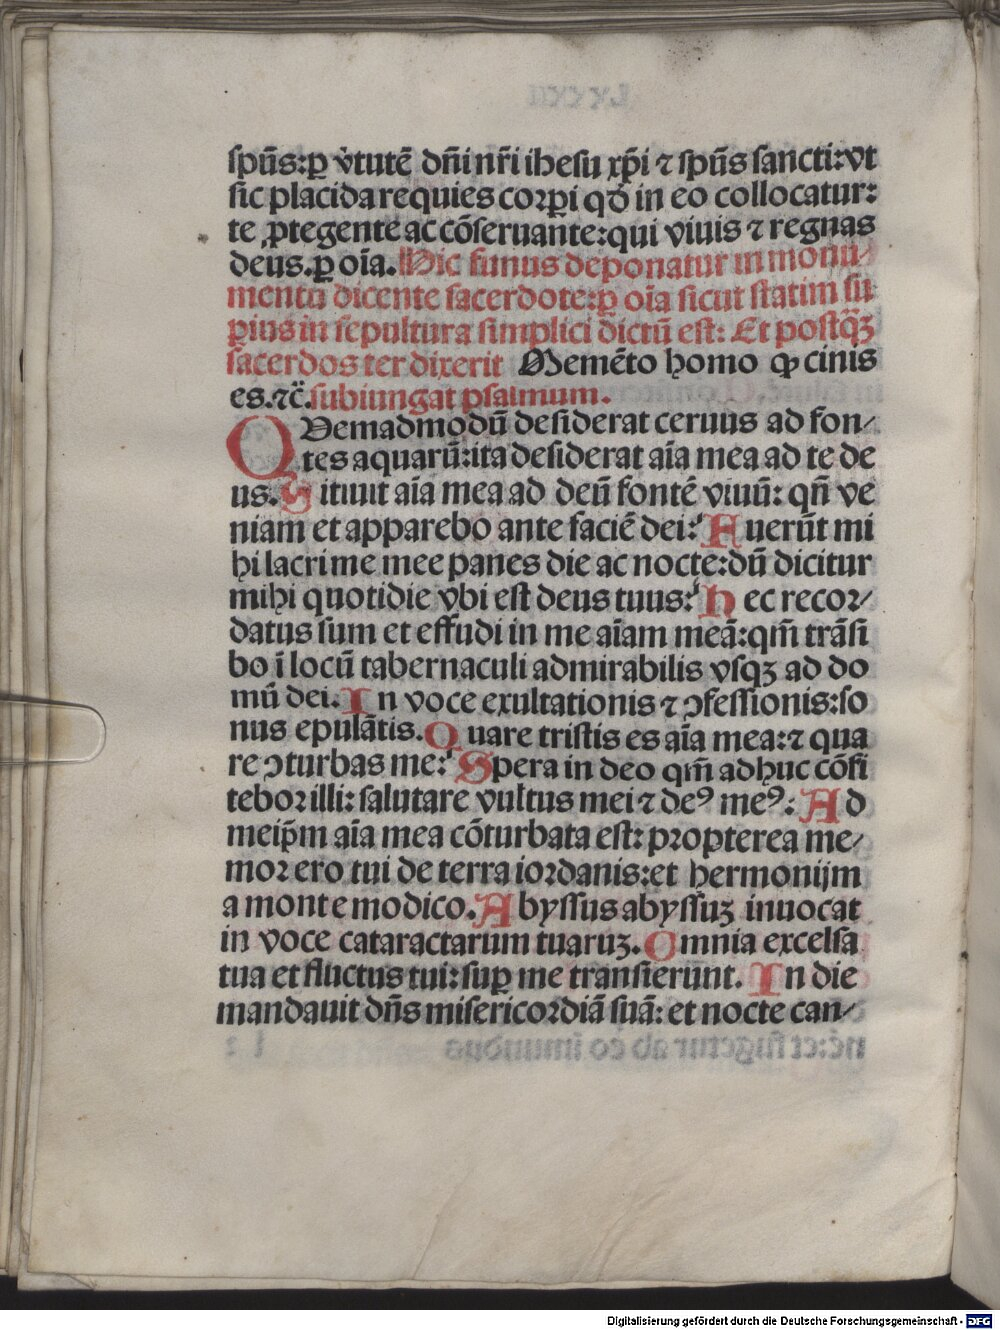 spūs: ꝑ v̓tutē dn̄i nr̄i ihesu xp̄i ⁊ spūs sancti: vt
sic placida requies corꝑi qđ in eo collocatur:
te ꝓtegente ac cōseruante: qui viuis ⁊ regnas
deus. ꝑ oīa. Hic funus deponatur in monu⸗
mentū dicente sacerdote: ꝑ oīa sicut statim su
ꝑius in sepultura simplici dictū est: Et postq̄ꝫ
sacerdos ter dixerit Memēto homo ꝙ cinis
es. ⁊c̄. subiungat psalmum.
QVemadmodū desiderat ceruus ad fon⸗
tes aquarū: ita desiderat aīa mea ad te de
us. Sitiuit aīa mea ad deū fontē viuū: qn̄ ve
niam et apparebo ante faciē dei: Fuerūt mi
hi lacrime mee panes die ac nocte: dū dicitur
mihi quotidie vbi est deus tuus: Hec recor⸗
datus sum et effudi in me aīam meā: qm̄ trāsi
bo ī locū tabernaculi admirabilis vsqꝫ ad do
mū dei. In voce exultationis ⁊ ↄfessionis: so
nus epulātis. Quare tristis es aīa mea: ⁊ qua
re ↄturbas me: Spera in deo qm̄ adhuc cōfi
tebor illi: salutare vultus mei ⁊ deꝰ meꝰ: Ad
meip̄m aīa mea cōturbata est: propterea me⸗
mor ero tui de terra iordanis: et hermonijm
a monte modico. Abyssus abyssuꝫ inuocat
in voce cataractarum tuaruꝫ. Omnia excelsa
tua et fluctus tui: suꝑ me transierunt. In die
mandauit dn̄s misericordiā suā: et nocte can⸗
Digitalisierung gefördert durch die Deutsche Forschungsgemeinschaft - DFG